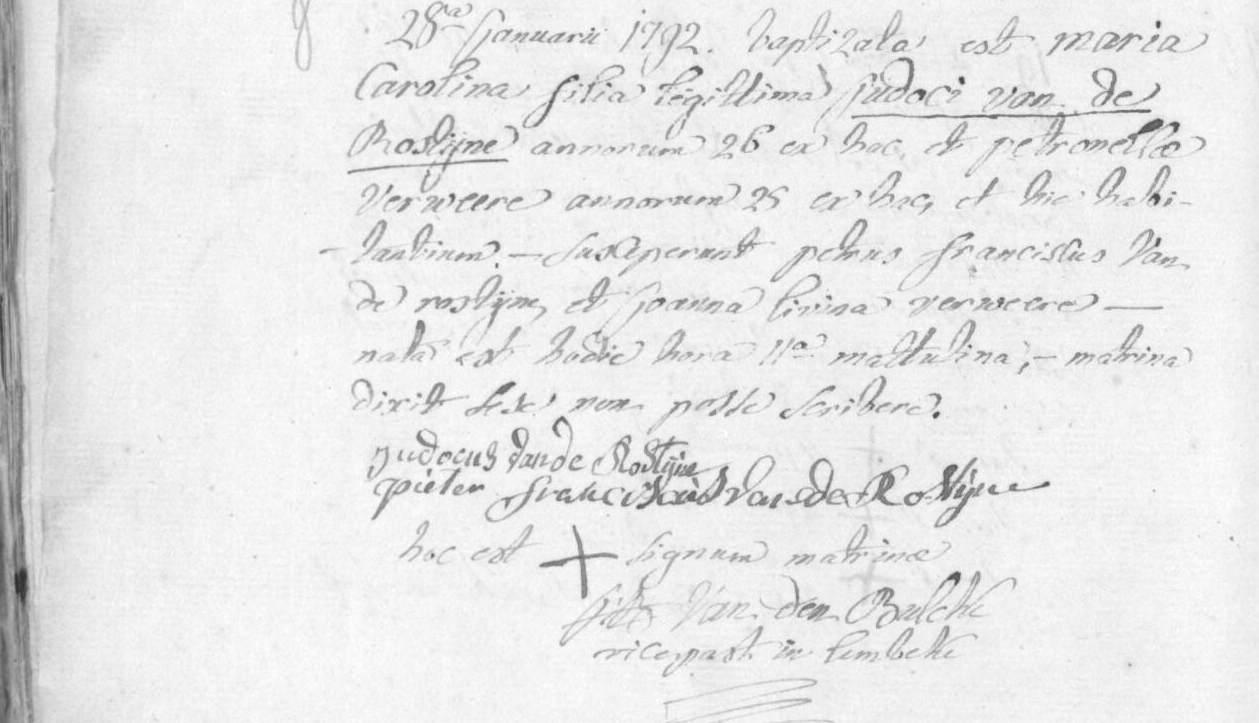 28a Januarii 1792. baptizata est maria
Carolina filia legittima Judoci van de
Rostijne annorum 26 ex hac, et petronellæ
Verweere annorum 25 ex hac, et hic habi-
-tantium. - susceperunt petrus franciscus Van
de rostijne, et Joanna livina verweere —
nata est hodie hora 11a mattutina, - matrina
dixit sese non posse scribere.
judocus van de Rostijne
pieter franciscus van de Rostijne
hoc est + signum matrinæ
Van den Bulcke
vicepast. in lembeke